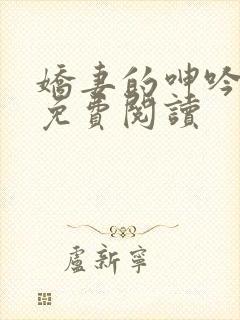 嬌妻的呻吟
免費閱讀
盧新寧